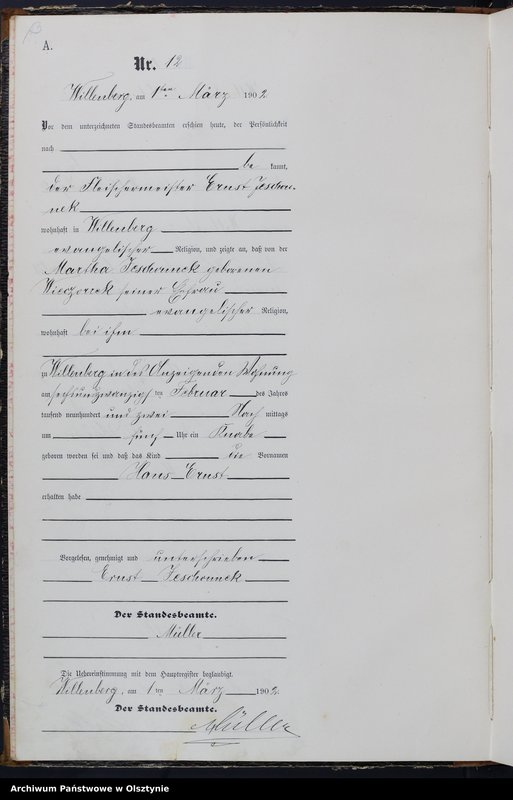 A.
Nr. 12
Willenberg, am 1ten März 1902
Vor dem unterzeichneten Standesbeamten erschien heute, der Persönlichkeit
nach
be kannt,
der Fleischermeister Ernst Jeschon-
nek
wohnhaft in Willenberg
evangelischer Religion, und zeigte an, daß von der
Martha Jeschonnek geborenen
Wieczorrek seiner Ehefrau
evangelischer Religion,
wohnhaft bei ihm
zu Willenberg in des Anzeigenden Wohnung
am sechsundzwanzigsten Februar des Jahres
tausend neunhundert und zwei Nach mittags
um fünf Uhr ein Knabe
geboren worden sei und daß das Kind die Vornamen
Hans Ernst
erhalten habe
Vorgelesen, genehmigt und unterschrieben
Ernst Jeschonnek
Der Standesbeamte.
Müller
Die Uebereinstimmung mit dem Hauptregister beglaubigt.
Willenberg, am 1ten März 1902.
Der Standesbeamte.
Müller
Archiwum Państwowe w Olsztynie